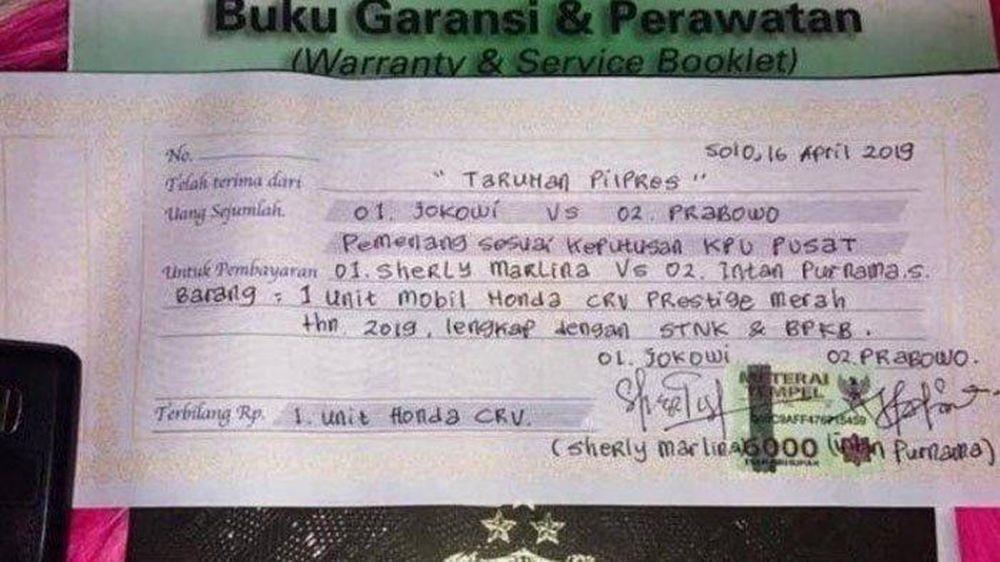 Buku Garansi & Perawatan
(Warranty & Service Booklet)
No. Solo, 16 April 2019
Telah terima dari " Taruhan Pilpres "
Uang Sejumlah. 01. Jokowi Vs 02. Prabowo
Pemenang sesuai Keputusan KPU Pusat
Untuk Pembayaran 01. Sherly Marlina Vs 02. Intan Purnama.s.
Barang : 1 Unit Mobil Honda CRV Prestige Merah
thn 2019, lengkap dengan STNK & BPKB.
01. Jokowi 02. Prabowo.
METERAI
TEMPEL
Terbilang Rp. 1. Unit Honda CRV.
6000
(Sherly Marlina) (Intan Purnama)